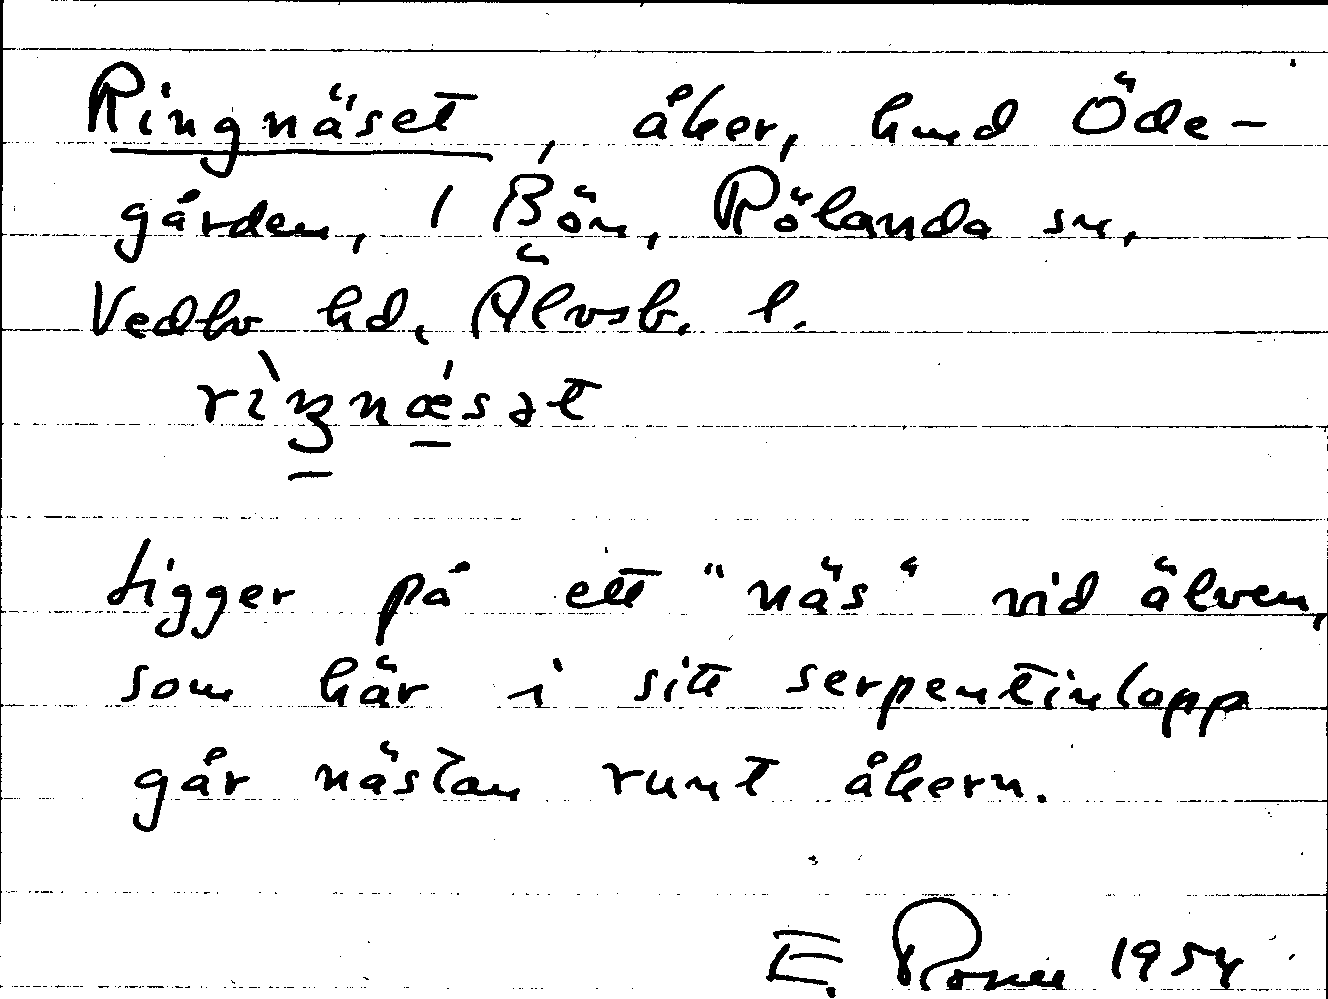 Ringnäset, åker, hmd Öde-
gården, 1 Bön, Rölanda sn,
Vedbo hd, Älvsb. l.
Ligger på ett "näs" vid älven,
som här i sitt serpentinlopp
går nästan runt åkern.
E. 1954